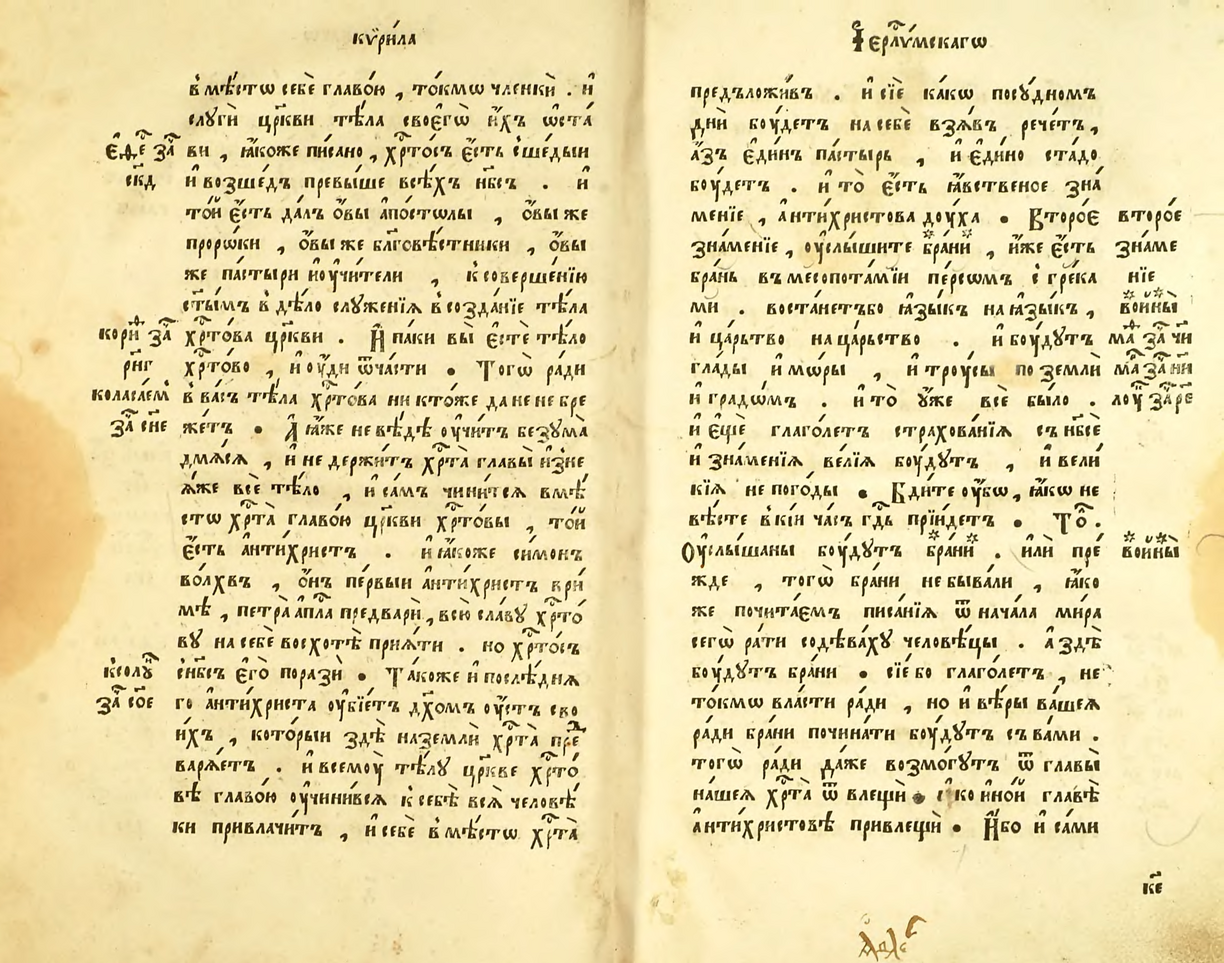 кѵри́ла
в̾мѣ́стѡ себѐ главо́ю , то́кмѡ членкѝ . и҆
слꙋгѝ цр҃кви тѣ́ла своегѡ̀ и҆́хъ ѡ҆ста́
є҆фе за҄ ви , ꙗ҆́коже пи́сано , хр҄то́съ є҆́сть сше́дыи
скд и҆ возше́дъ превы́ше всѣ́хъ нб҃съ . и҆
то́й є҆́сть да́лъ о҆́вы а҆по́столы , о҆́вы же
проро́ки , о҆́вы же бл҃говѣ́стники , о҆́вы
же па́стыри и҆ оу҆чи́тели , к̾ соверше́нїю
ст҃ы́мъ в̾ дѣ́ло слꙋже́нїѧ в̾ созда́нїе тѣ́ла
кори҄ за҄ хр҄то́ва цр҃кви . И҆ па́ки вы̀ є҆стѐ тѣ́ло
рнг хр҄то́во , и҆ оу҆́ди ѿча́сти • Тогѡ̀ ра́ди
коласаем в̾ ва́съ тѣ́ла хр҄то́ва ни кто́же да не небре
за҄ сне же́тъ • А҆ ꙗ҆́же не вѣ́дѣ оу҆чи́тъ безꙋ́ма
дмѧ́сѧ , и҆ не держи́тъ хр҄та̀ главы̀ и҆зне
ѧ҆́же всѐ тѣ́ло , и҆ са́мъ чини́тсѧ вмѣ́
стѡ хр҄та̀ главо́ю цр҃кви хр҄то́вы , то́й
є҆́сть а҆нти́христъ . и҆ ꙗ҆́коже си́монъ
во́лхвъ , о҆́нъ пе́рвыи а҆нти́христъ в̾ри́
мѣ , петра̀ а҆пл҃а предварѝ , всю̀ сла́вꙋ хр҄то́
вꙋ на себѐ восхотѣ̀ прїѧ́ти . но хр҄то́съ
ксолꙋ҄ с̾нб҃съ є҆го̀ поразѝ • Та́коже и҆ послѣ́днѧ
за҄ сое го а҆нти́христа оу҆бїе́тъ дх҃омъ оу҆́стъ сво
и́хъ , кото́рыи здѣ̀ на землѝ хр҄та̀ пре
варѧ́етъ . и҆ всемоу̀ тѣ́лꙋ цр҃кве хр҄то́
вѣ главо́ю оу҆чини́всѧ к̾ себѣ̀ всѧ̀ человѣ́
ки привлачи́тъ , и҆ себѐ в̾мѣ́стѡ хр҄та̀
І҆ерл҃и́мскагѡ
предъложи́въ . и҆ сїѐ ка́кѡ посꙋ́дномъ
днѝ боу́детъ на себѐ взѧ́въ рече́тъ ,
а҆́зъ є҆ди́нъ па́стырь , и҆ є҆ди́но ста́до
боу́детъ . и҆ то̀ є҆́сть ꙗ҆́вственое зна́
менїе , а҆нти́христова доу́ха • Второ́е второ́е
зна́менїе , оу҆слы́шите бра́ни , и҆́же є҆́сть зна́ме
бра́нь въ месопота́мїи пе́рсѡмъ с̾ гре́ка нїе
ми . воста́нетъбо ꙗ҆зы́къ на ꙗ҆зы́къ , во́йны
и҆ ца́рьство на ца́рьство . и҆ боу́дꙋтъ ма҄ за҄ чи
гла́ды и҆ мѡ́ры , и҆ троу́сы по землѝ ма҄ за҄ ни
и҆ гра́дѡмъ . и҆ то̀ оу҆жѐ всѐ бы́ло . лоу҄ за҄ ре
и҆ є҆щѐ глаго́летъ страхова́нїѧ съ нб҃сѐ
и҆ зна́менїѧ ве́лїѧ боу́дꙋтъ , и҆ вели́
кїѧ непого́ды • Бди́те оу҆́бѡ , ꙗ҆́кѡ не
вѣ́сте в̾ кі́и ча́съ гд҃ь прїи́детъ • То҄ .
Оу҆слы́шаны боу́дꙋтъ бра́ни . и҆лѝ пре́ во́йны
жде , тогѡ̀ бра́ни не быва́ли , ꙗ҆́ко
же почита́емъ писа́нїѧ ѿ нача́ла ми́ра
сегѡ̀ ра́ти содѣ́вахꙋ человѣ́цы . а҆ здѣ̀
боу́дꙋтъ бра́ни • сїе́ бо глаго́летъ , не
то́кмѡ вла́сти ра́ди , но и҆ вѣ́ры ва́шеѧ
ра́ди бра́ни почина́ти боу́дꙋтъ съ ва́ми .
тогѡ̀ ра́ди да́же возмо́гꙋтъ ѿ главы̀
на́шеѧ хр҄та̀ ѿвлещѝ • ко и҆но́й главѣ̀
а҆нти́христовѣ привлещѝ • И҆́бо и҆ са́ми
к҃е